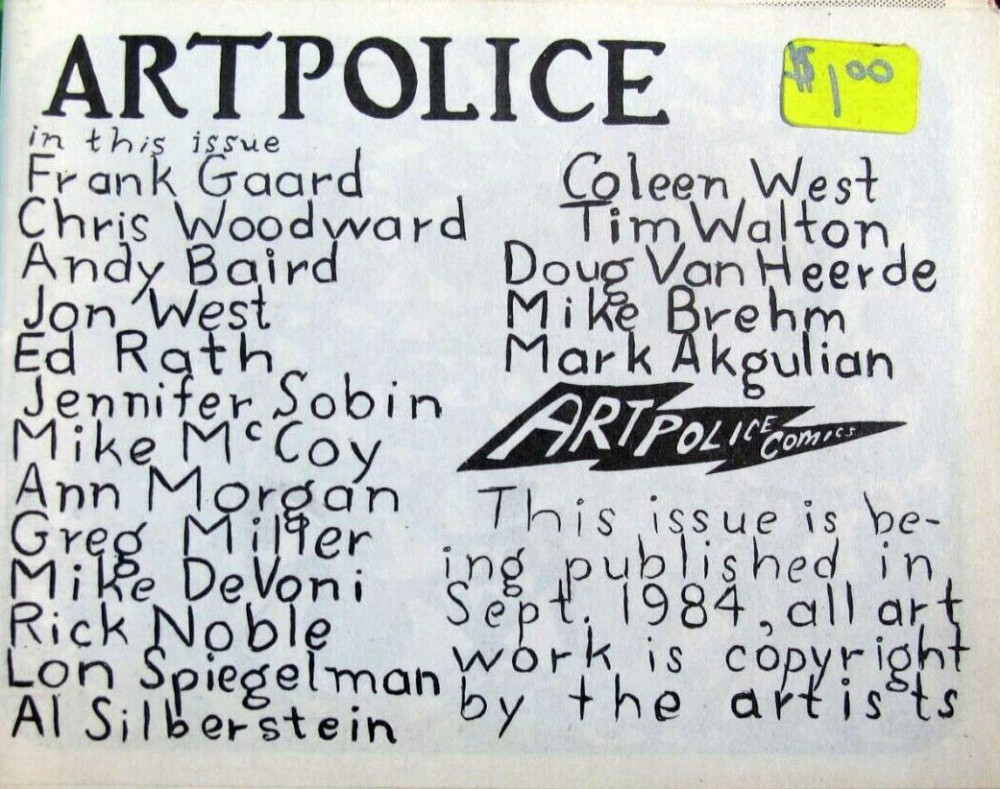 ARTPOLICE
$1.00
in this issue
Frank Gaard
Chris Woodward
Andy Baird
Jon West
Ed Rath
Jennifer Sobin
Mike McCoy
Ann Morgan
Greg Miller
Mike DeVoni
Rick Noble
Lon Spiegelman
Al Silberstein
Coleen West
Tim Walton
Doug Van Heerde
Mike Brehm
Mark Akgulian
ARTPOLICE COMICS
This issue is be-
ing published in
Sept. 1984, all art
work is copyright
by the artists